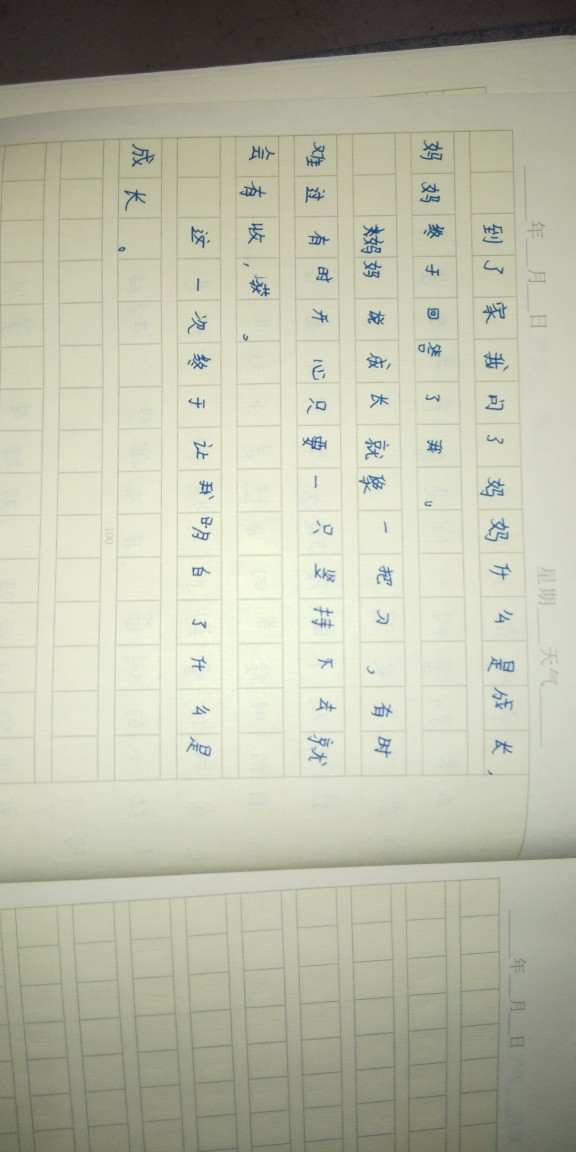 年 月 日 星期 天气
到了家我问了妈妈什么是成长,
妈妈终于回答了我。
妈妈说成长就像一把刀,有时
难过有时开心只要一只坚持下去就
会有收获。
这一次终于让我明白了什么是
成长。
100
年 月 日